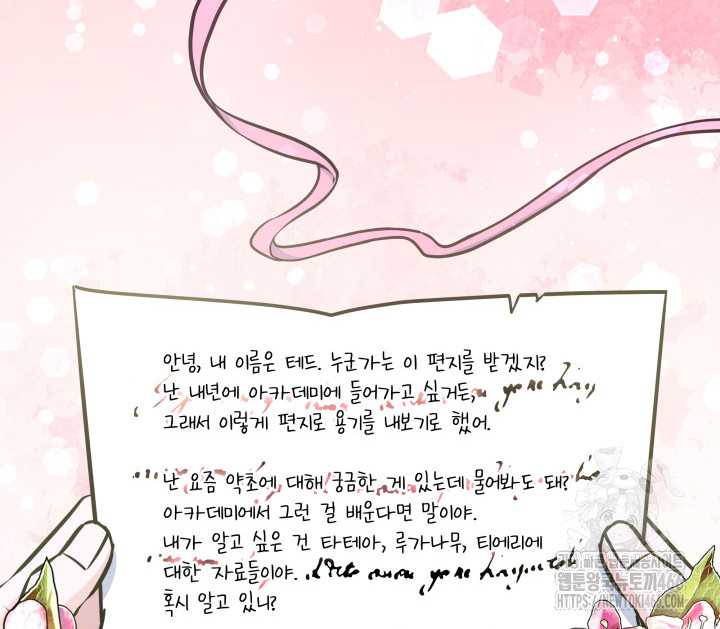 안녕, 내 이름은 테드. 누군가는 이 편지를 받겠지?
난 내년에 아카데미에 들어가고 싶거든,
그래서 이렇게 편지로 용기를 내보기로 했어.
난 요즘 약초에 대해 궁금한 게 있는데 물어봐도 돼?
아카데미에서 그런 걸 배운다면 말이야.
내가 알고 싶은 건 타테아, 루가나무, 티에리에
대한 자료들이야.
혹시 알고 있니?
가장 빠른 웹툰배송서비스
웹툰왕국뉴토끼466
HTTPS://NEWTOKI466.COM